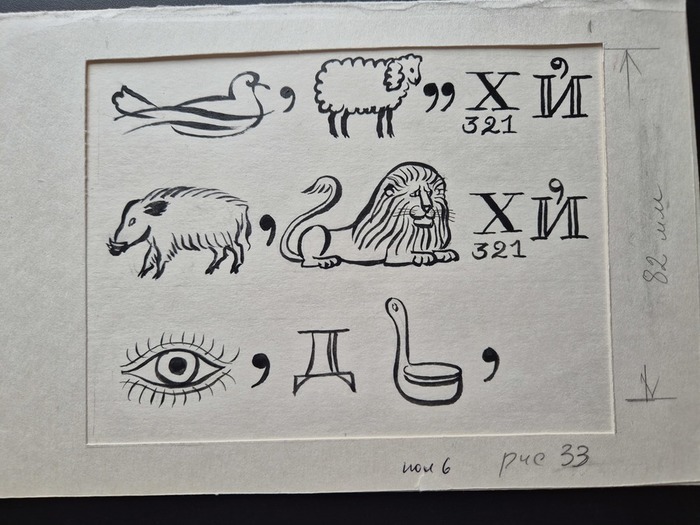 , ,, Х Й
321
, Х Й
321
82 мм
, Д ,
пол 6 рис 33